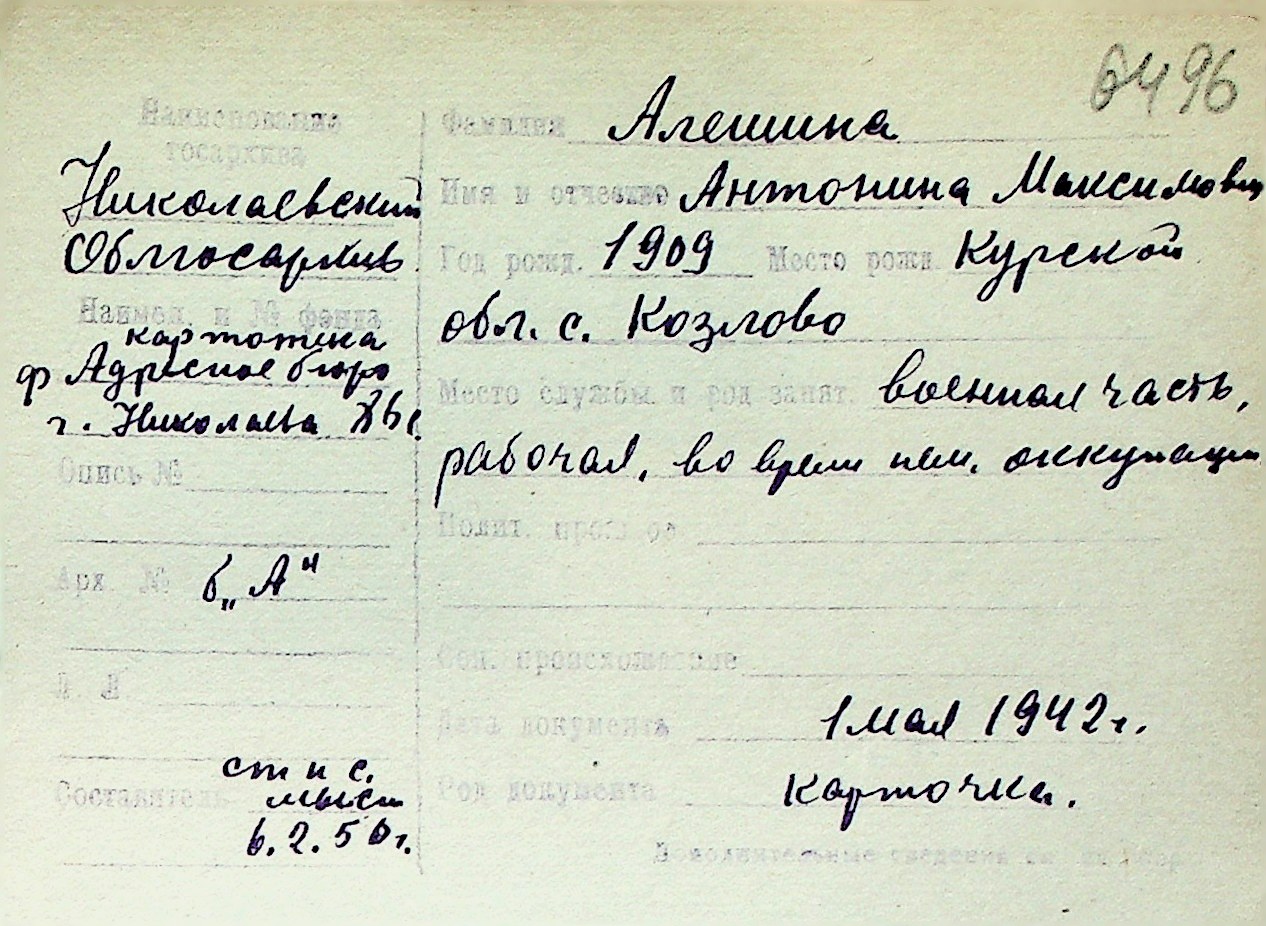 6496
Наименование
госархива
Николаевский
Облгосархив
Наимен. и № фонда
картотека
ф Адресное бюро
г. Николаева
Опись №
Арх. № б„А"
Л. Л.
Составитель ст н с.
6.2.50г.
Фамилия Алешина
Имя и отчество Антонина Максимовн
Год рожд. 1909 Место рожд. Курской
обл. с. Козлово
Место службы и род занят. военная часть,
рабочая, во время нем. оккупации
Полит.
Соц. происхождение
Дата документа 1 мая 1942г.
Род документа Карточка.
Дополнительные сведения см. на обор